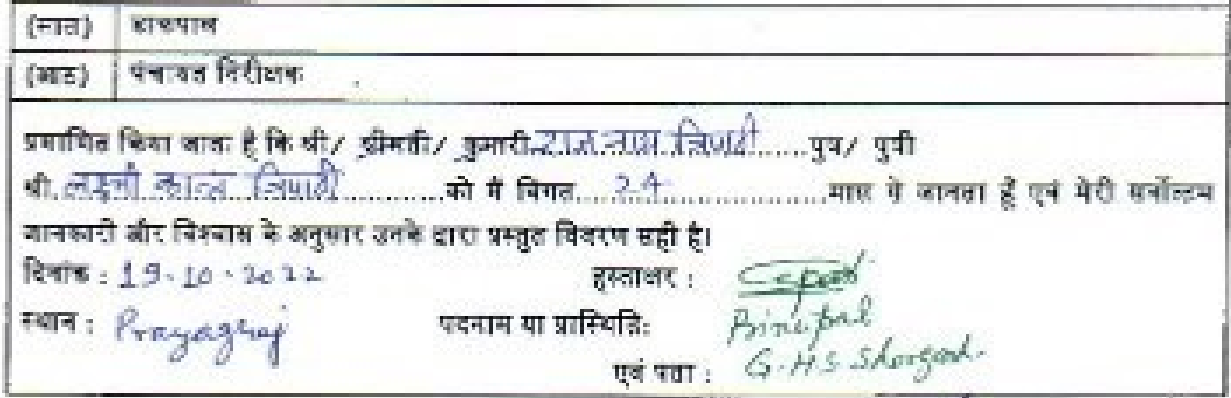 (सात) डाकपाल
(आठ) पंचायत निरीक्षक
प्रमाणित किया जाता है कि श्री/ श्रीमती/ कुमारी राम नाथ त्रिपाठी पुत्र/ पुत्री
श्री. लक्ष्मी कान्त त्रिपाठी को मैं विगत 24 मास से जानता हूँ एवं मेरी सर्वोत्तम
जानकारी और विश्वास के अनुसार उनके द्वारा प्रस्तुत विवरण सही है।
दिनांक : 19.10.2022 हस्ताक्षर :
स्थान : Prayagraj पदनाम या प्रास्थिति: Principal
एवं पता : G.H.S.